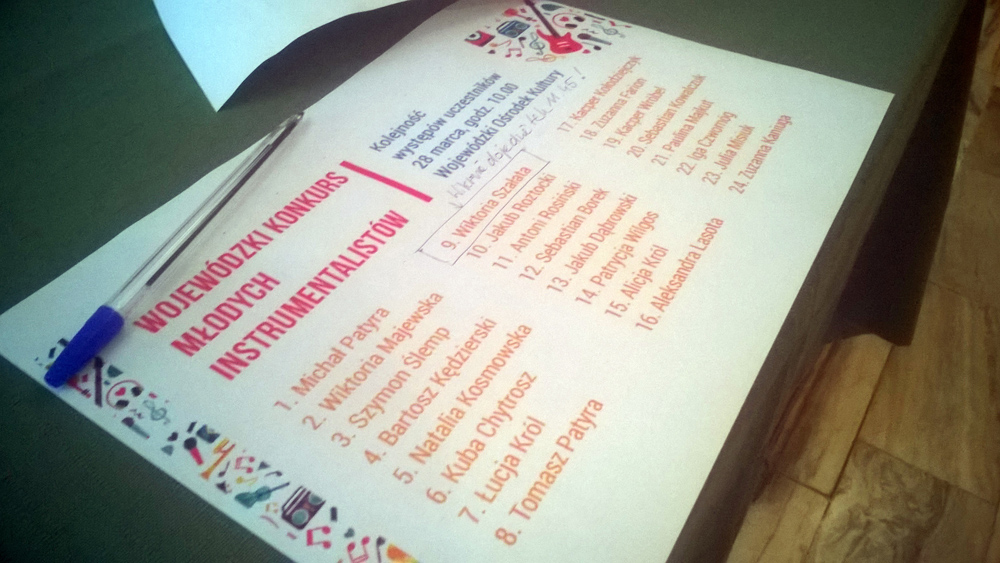 WOJEWÓDZKI KONKURS
MŁODYCH
INSTRUMENTALISTÓW
Kolejność
występów uczestników
28 marca, godz. 10.00
Wojewódzki Ośrodek Kultury
1. Michał Patyra
2. Wiktoria Majewska
3. Szymon Ślemp
4. Bartosz Kędzierski
5. Natalia Kosmowska
6. Kuba Chytrosz
7. Łucja Król
8. Tomasz Patyra
9. Wiktoria Szafata
10. Jakub Roztocki
11. Antoni Rosiński
12. Sebastian Borek
13. Jakub Dąbrowski
14. Patrycja Wilgos
15. Alicja Król
16. Aleksandra Lasota
17. Kacper Kołodziejczyk
18. Zuzanna Fanon
19. Kacper Wróbel
20. Sebastian Kowalczuk
21. Paulina Majkut
22. Iga Czwornog
23. Julia Misiuk
24. Zuzanna Kaniuga